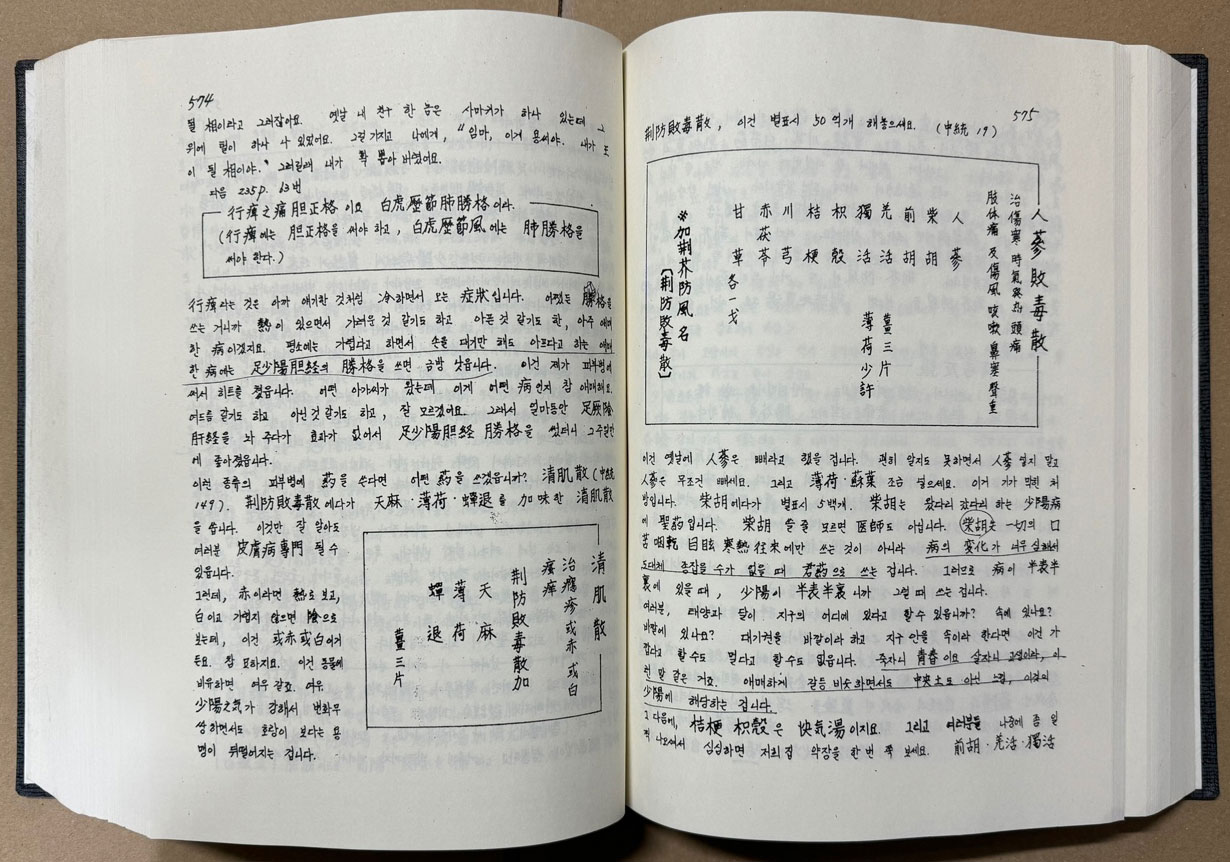 574
될 相이라고 그러잖아요. 옛날 내 친구 한 놈은 사마귀가 하나 있는데 그
위에 털이 하나 나 있었어요. 그걸 가지고 나에게, "임마, 이게 용써야. 내가 또
이 될 相이야." 그러길래 내가 확 뽑아 버렸어요.
다음 235p. 63번
行痺之痛胆正格이요 白虎歷節肺勝格이라.
(行痺에는 胆正格을 써야 하고, 白虎歷節風에는 肺勝格을
써야 한다.)
行痺라는 것은 아까 얘기한 것처럼 冷하면서 오는 症狀입니다. 어쨌든 勝格을
쓰는 거니까 熱이 있으면서 가려운 것 같기도 하고, 아픈 것 같기도 한, 아주 애매
한 病이겠지요. 평소에는 가렵다고 하면서 손을 대기만 해도 아프다고 하는 애매
한 病에는 足少陽胆経의 勝格을 쓰면 금방 낫습니다. 이건 제가 피부병에
써서 히트를 쳤읍니다. 어떤 아가씨가 왔는데 이게 어떤 病인지 참 애매해요.
여드름 같기도 하고 아닌 것 같기도 하고, 잘 모르겠어요. 그래서 얼마동안 足厥陰
肝経을 놔 주다가 효과가 없어서 足少陽胆経 勝格을 썼더니 그 주일만
에 좋아졌읍니다.
이런 종류의 피부병에 葯을 쓴다면 어떤 葯을 쓰겠읍니까? 清肌散 (中統
149). 荆防敗毒散에다가 天麻·薄荷·蟬退를 加味한 清肌散
을 씁니다. 이것만 잘 알아도
여러분 皮膚病專門 될 수
있읍니다.
그런데, 赤이라면 熱로 보고,
白이고 가렵지 않으면 陰으로
보는데, 이건 或赤或白이거
든요. 참 묘하지요. 이건 동물에
비유하면 여우 같죠. 여우
少陽之氣가 강해서 변화무
쌍하면서도 호랑이 보다는 용
맹이 뒤떨어지는 겁니다.
清肌散
治癮疹或赤或白
瘙痒
荆防敗毒散加
天麻
薄荷
蟬退
薑三片
575
荆防敗毒散, 이건 별표시 50억개 해놓으세요. (中統 19)
人蔘敗毒散
治傷寒時氣發熱頭痛
肢体痛及傷風咳嗽鼻塞聲重
人蔘
柴胡
前胡
羌活
獨活
枳殼
桔梗
川芎
赤茯苓
甘草 各一戈
薑三片
薄荷少許
※加荆芥防風名
[荆防敗毒散]
이건 옛날에 人蔘은 빼라고 했을 겁니다. 괜히 알지도 못하면서 人蔘 넣지 말고
人蔘은 무조건 빼세요. 그리고 薄荷·蘇葉 조금 넣으세요. 이거 기가 막힌 처
방입니다. 柴胡에다가 별표시 5백개. 柴胡는 왔다리 갔다리 하는 少陽病
에 聖葯입니다. 柴胡 쓸 줄 모르면 医師도 아닙니다. 柴胡는 一切의 口
苦 咽乾 目眩 寒熱往來에만 쓰는 것이 아니라 病의 変化가 너무 심해서
도대체 종잡을 수가 없을 때 君葯으로 쓰는 겁니다. 그러므로 病이 半表半
裏에 있을 때, 少陽이 半表半裏니까 그럴 때 쓰는 겁니다.
여러분, 태양과 달이 지구의 어디에 있다고 할 수 있읍니까? 속에 있나요?
바깥에 있나요? 대기권을 바깥이라 하고 지구 안을 속이라 한다면 이건 가
깝다고 할 수도 멀다고 할 수도 없읍니다. 죽자니 青春이요 살자니 고생이라, 이
런 말 같은 거죠. 애매하게 갈등 비슷하면서도 中央土도 아닌 느낌, 이것이
少陽에 해당하는 겁니다.
그 다음에, 桔梗 枳殼은 快気湯이지요. 그리고 여러분들 나중에 좀 일
찍 나오셔서 심심하면 저희집 약장을 한 번 쭉 보세요. 前胡·羌活·獨活